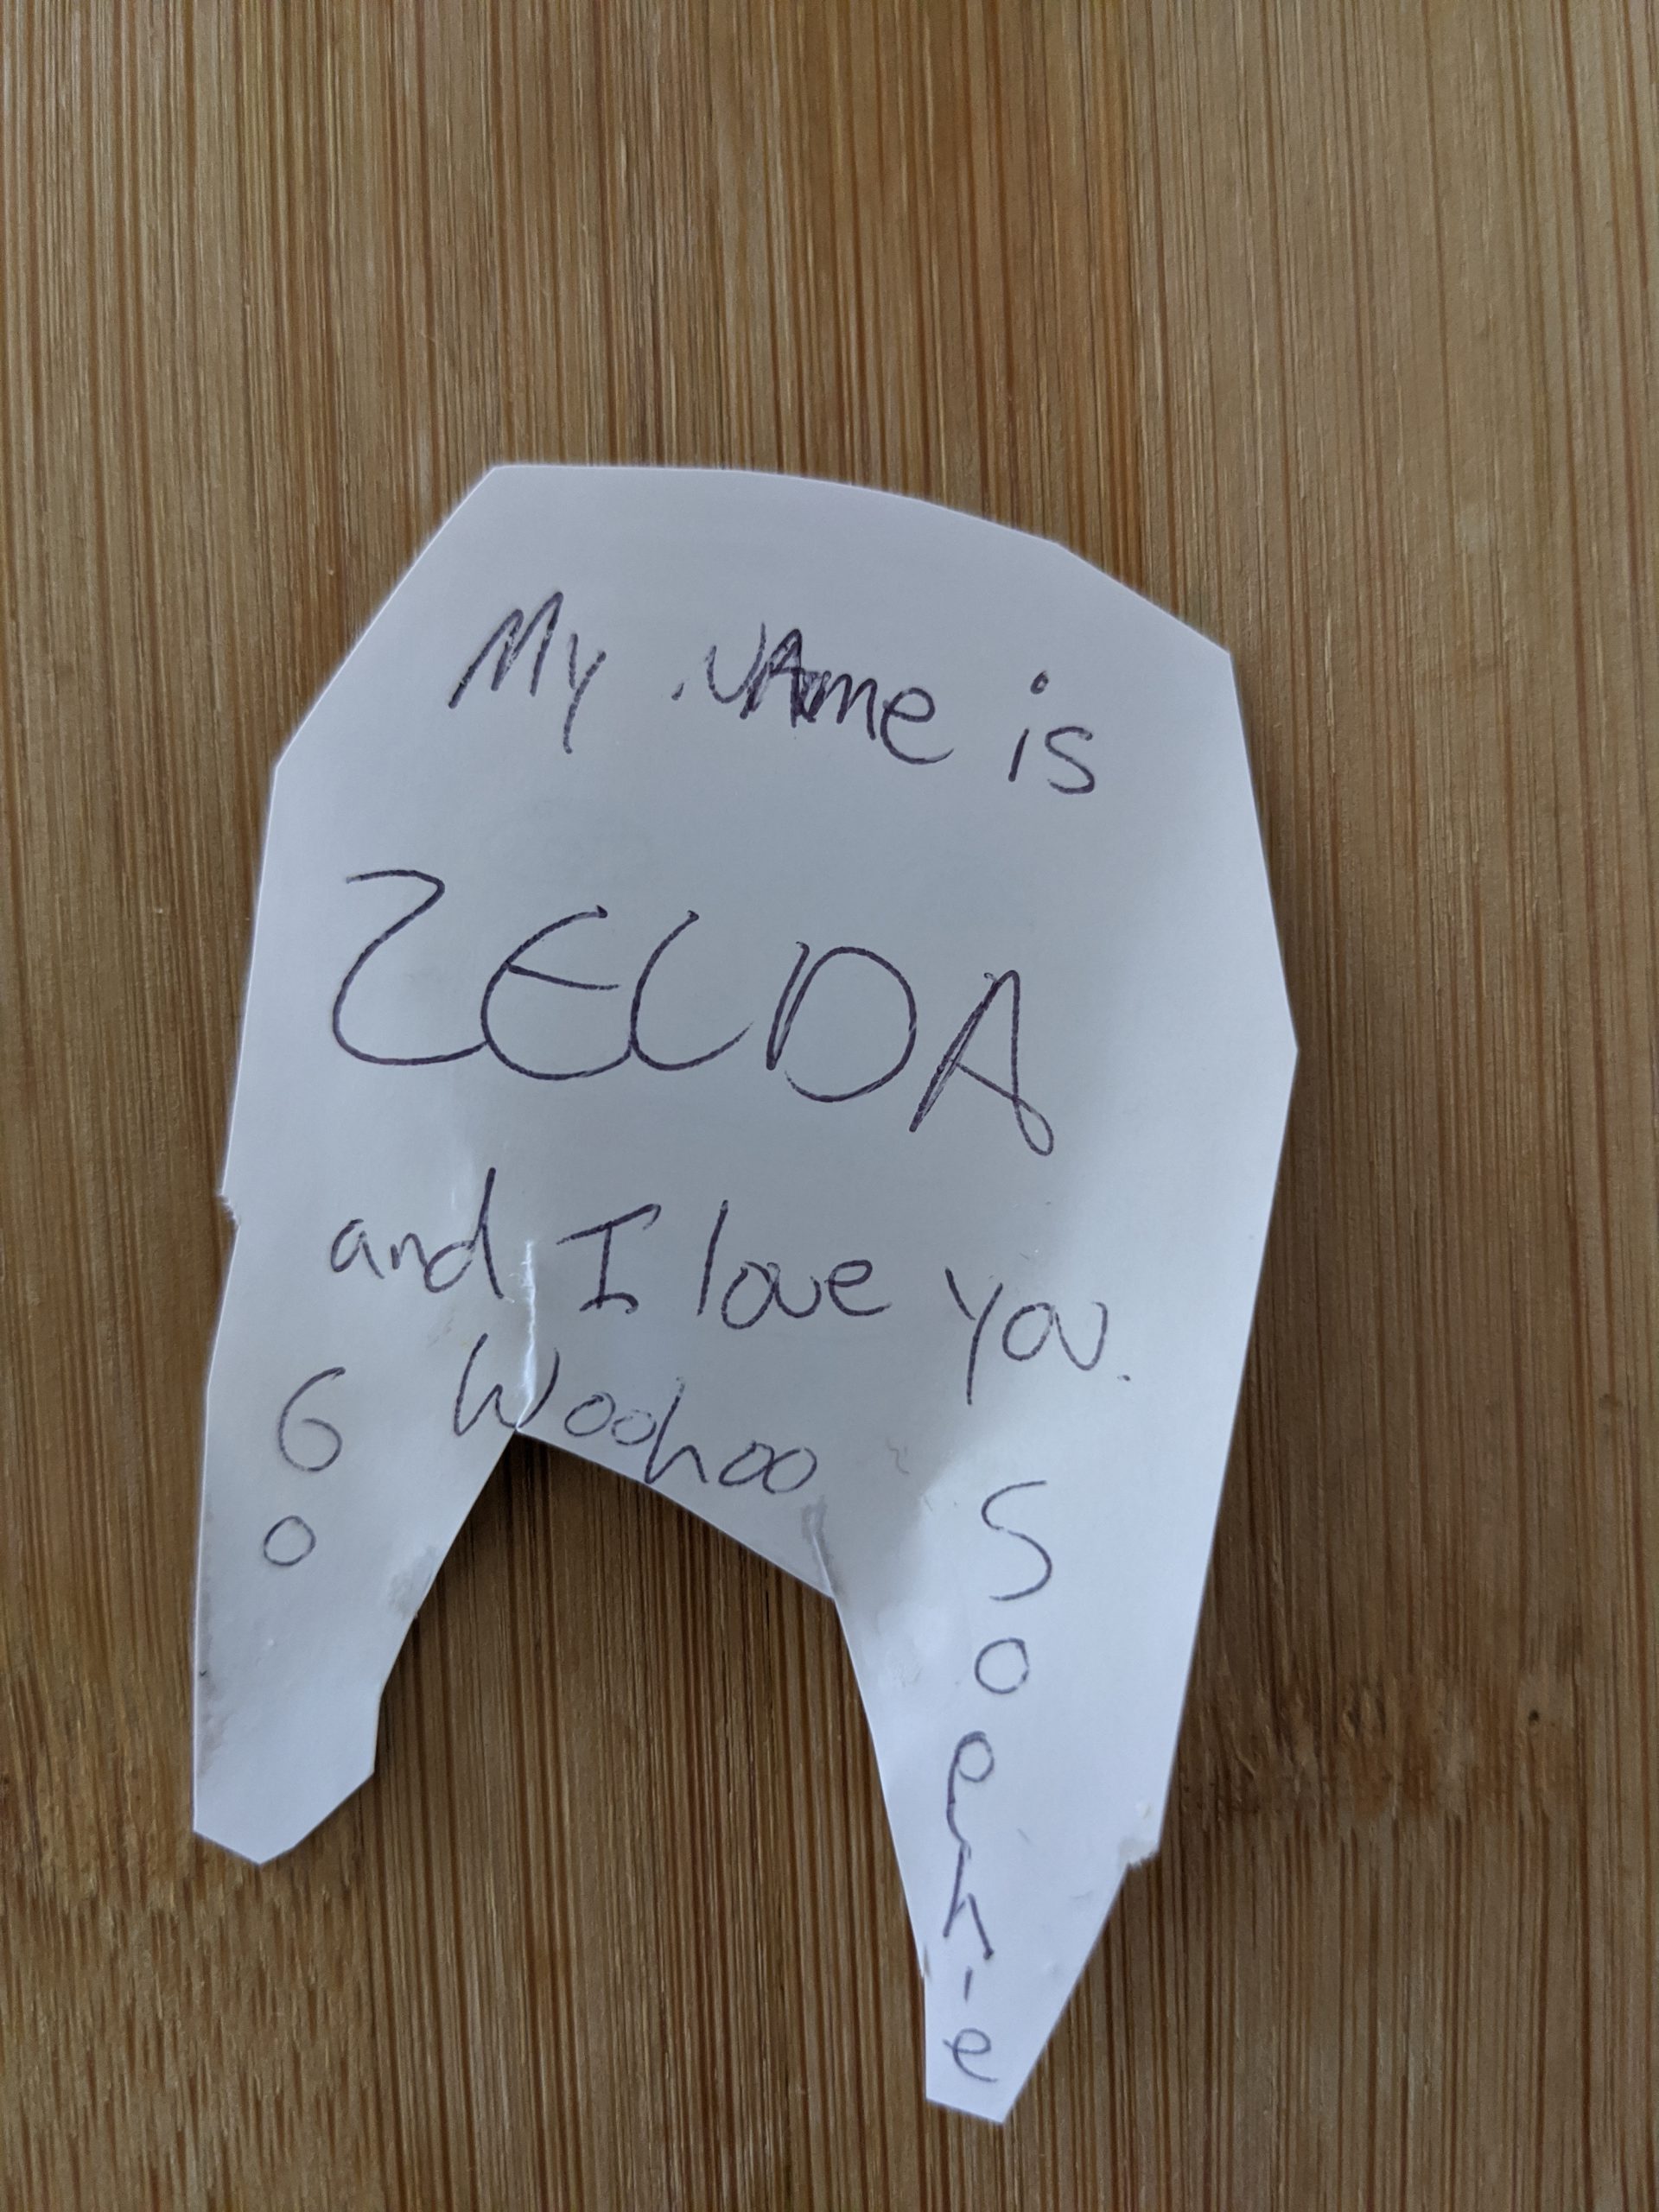 My NAme is
ZELDA
and I love you.
Woohoo
Go
Sophie